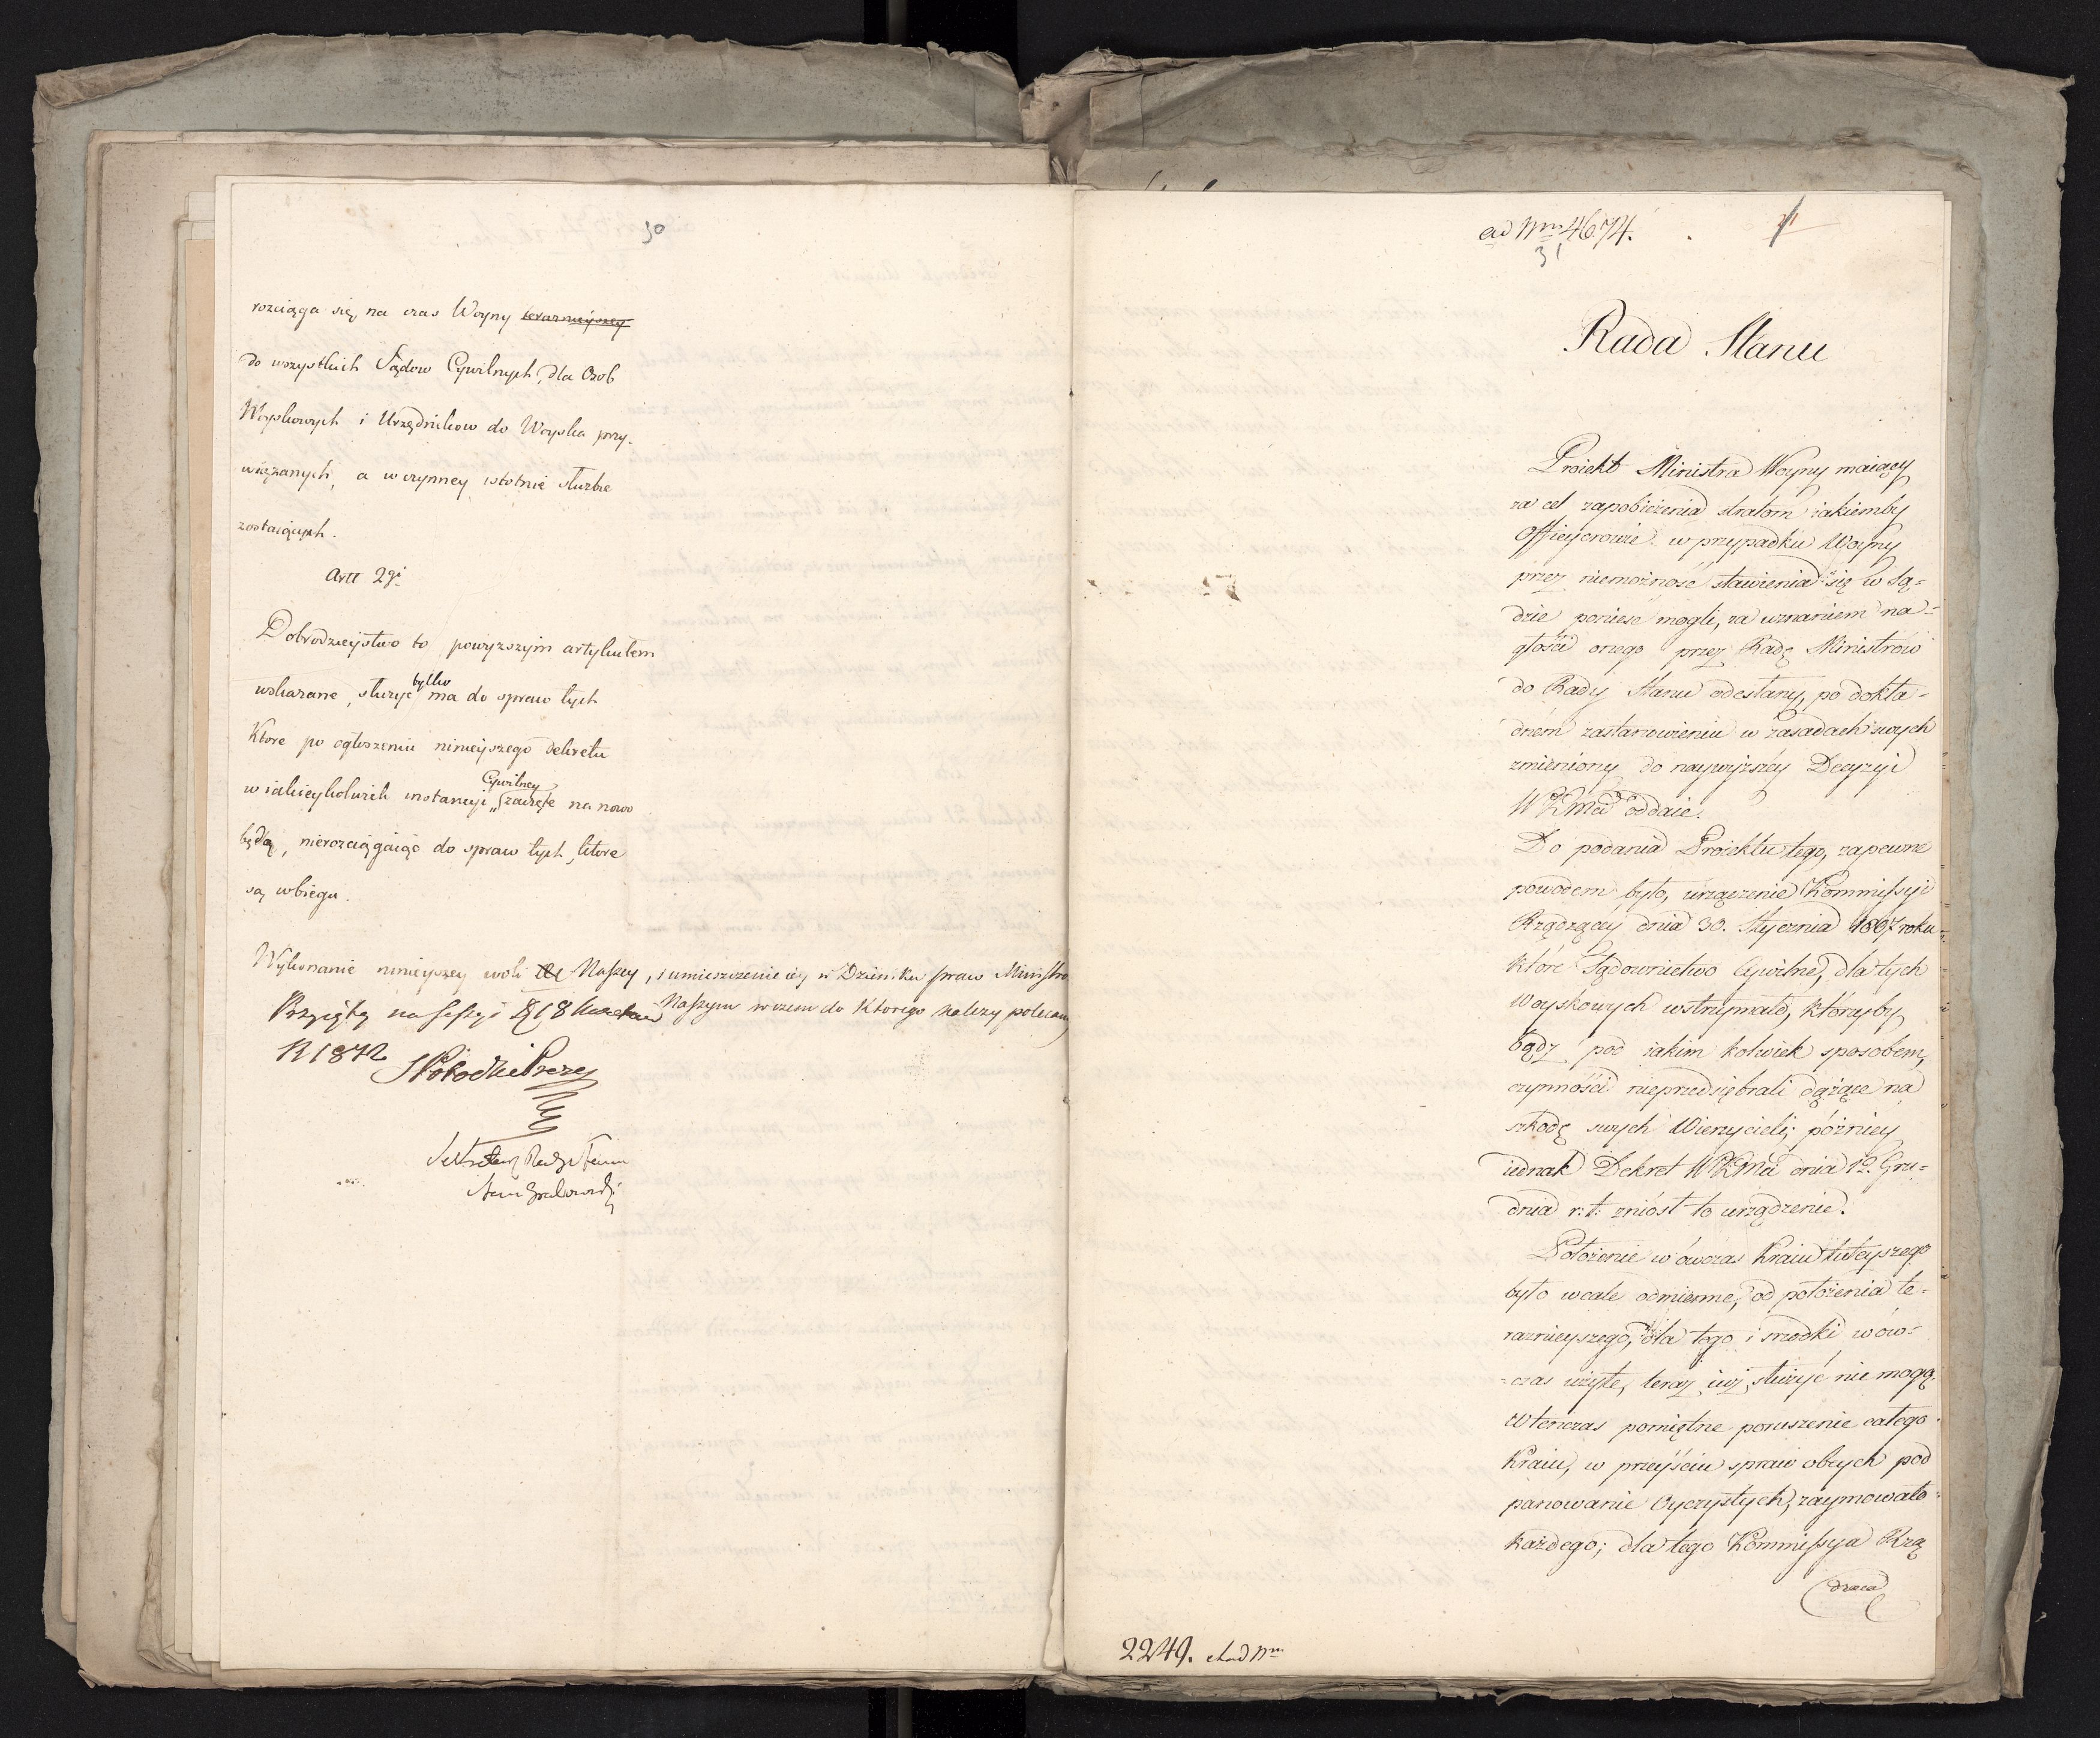 30
rozciąga się na czas Woyny terazniejszey
do wszystkich Sądow Cywilnych, dla Osob
Woyskowych i Urzędnikow do Woyska przy-
wiązanych, a w czynney istotnie służbie
zostaiących.
Artt 2gi
Dobrodzieystwo to powyzszym artykułem
wskazane, służyć tylko ma do spraw tych
Ktore po ogłoszeniu ninieyszego dekretu
w iakieykolwiek instancyi Cywilney zaczęte na nowo
będą, nierozciągaiąc do spraw tych, ktore
są w biegu.
Wykonanie ninieyszey woli Naszey, i umieszczenie iey w Dzienniku praw Ministro
Naszym w czem do Ktorego nalezy polecamy
Przyięty na Sessyi 18 Kwietnia
R 1812
S Potocki Prezes
Sekretarz Rady Stanu
Stan Grabowski
ad Nrm 4674.
31
Rada Stanu
Proiekt Ministra Woyny maiący
za cel zapobieżenia stratom iakiemby
Officyerowie w przypadku Woyny
przez niemożność stawienia się w Są=
dzie ponieść mogli, za uznaniem na=
głości onego przez Radę Ministrów
do Rady Stanu odesłany, po dokła=
dném zastanowieniu w zasadach swych
zmieniony do naywyższéy Decyzyi
WKMci oddaie.
Do podania Proiektu tego, zapewne
powodem było, urządzenie Kommissyi
Rządzącéy dnia 30. Stycznia 1807 roku
które Sądownictwo Cywilne, dla tych
Woyskowych wstrzymało, którzyby
bądz pod iakim kolwiek sposobem,
czynności nieprzedsiębrali dążące na
szkodę swych Wierzycieli; póżniey
iednak Dekret WKMci dnia 19. Gru=
dnia r: t: zniósł to urządzenie.
Położenie w ówczas Kraiu tuteyszego
było wcale odmienne, od położenia te=
raznieyszego, dla tego i srzodki w ów=
=czas użyte, teraz iuż służyć nie mogą.
Wtenczas pomiętne poruszenie całego
Kraiu, w przeyściu spraw obcych pod
panowanie Oyczystych, zaymowało
każdego; dla tego Kommissya Rzą
dzaca
2249. ad Nrm